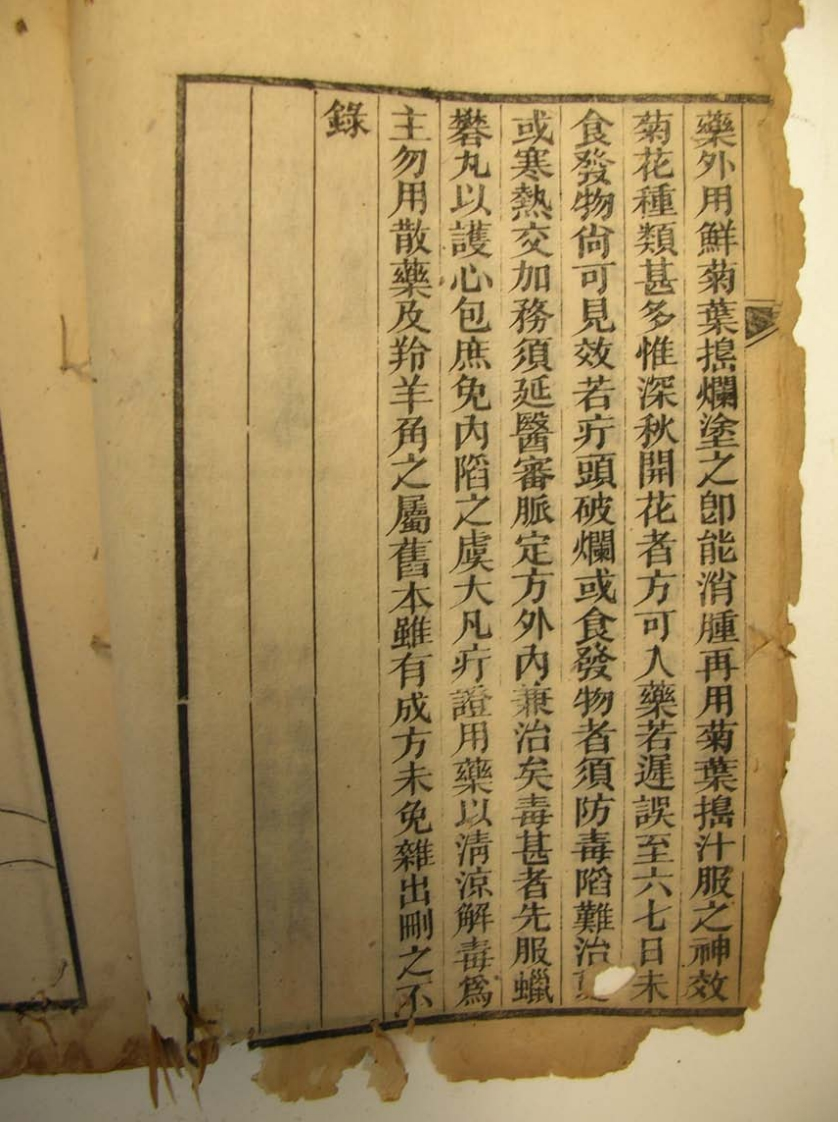 藥外用鮮菊葉搗爛塗之卽能消腫再用菊葉搗汁服之神效
菊花種類甚多惟深秋開花者方可入藥若遲誤至六七日未
食發物尙可見效若疔頭破爛或食發物者須防毒陷難治
或寒熱交加務須延醫審脈定方外內兼治矣毒甚者先服蠟
礬丸以護心包庶免內陷之虞大凡疔證用藥以清涼解毒爲
主勿用散藥及羚羊角之屬舊本雖有成方未免雜出刪之不
錄